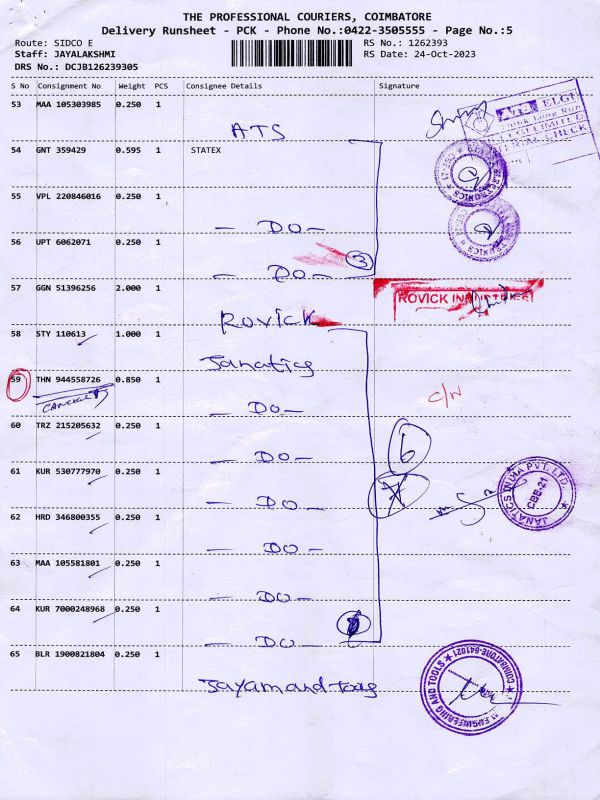 THE PROFESSIONAL COURIERS, COIMBATORE
Delivery Runsheet - PCK - Phone No.:0422-3505555 - Page No.:5
Route: SIDCO E
RS No.: 1262393
Staff: JAYALAKSHMI
RS Date: 24-Oct-2023
DRS No.: DCJB126239305
S No Consignment No Weight PCS Consignee Details Signature
53 MAA 105303985 0.250 1
ATS
ELGI
54 GNT 359429 0.595 1 STATEX
55 VPL 220846016 0.250 1
— DO —
56 UPT 6062071 0.250 1
3
— DO —
57 GGN 51396256 2.000 1
ROVICK
Rovick
58 STY 110613 1.000 1
Janatics
59 THN 944558726 0.850 1
C/N
— DO —
60 TRZ 215205632 0.250 1
6
— DO —
61 KUR 530777970 0.250 1
7
JANATICS INDIA PVT. LTD.
CBB-21
— DO —
62 HRD 346800355 0.250 1
— DO —
63 MAA 105581801 0.250 1
— DO —
64 KUR 7000248968 0.250 1
— DO —
65 BLR 1900821804 0.250 1
COIMBATORE-641021
ENGINEERING AND TOOLS